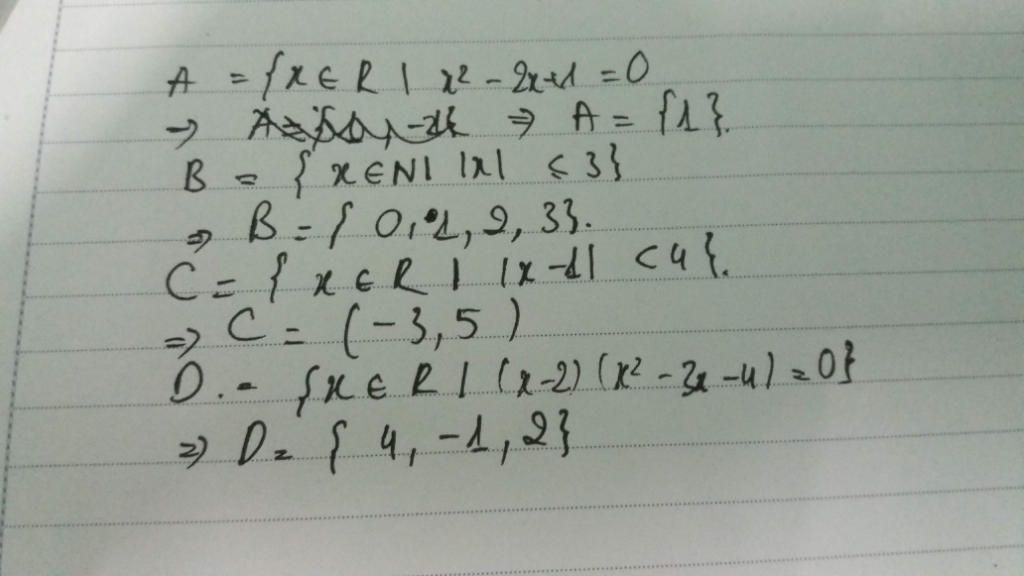 A = {x ∈ R | x² - 2x+1 = 0
⇒ A = {1}.
B = { x ∈ N | |x| ≤ 3}
⇒ B = { 0, 1, 2, 3}.
C = { x ∈ R | |x-1| < 4 }.
⇒ C = (-3, 5)
D. = {x ∈ R | (x-2) (x² - 3x - 4) = 0}
⇒ D = { 4, -1, 2}